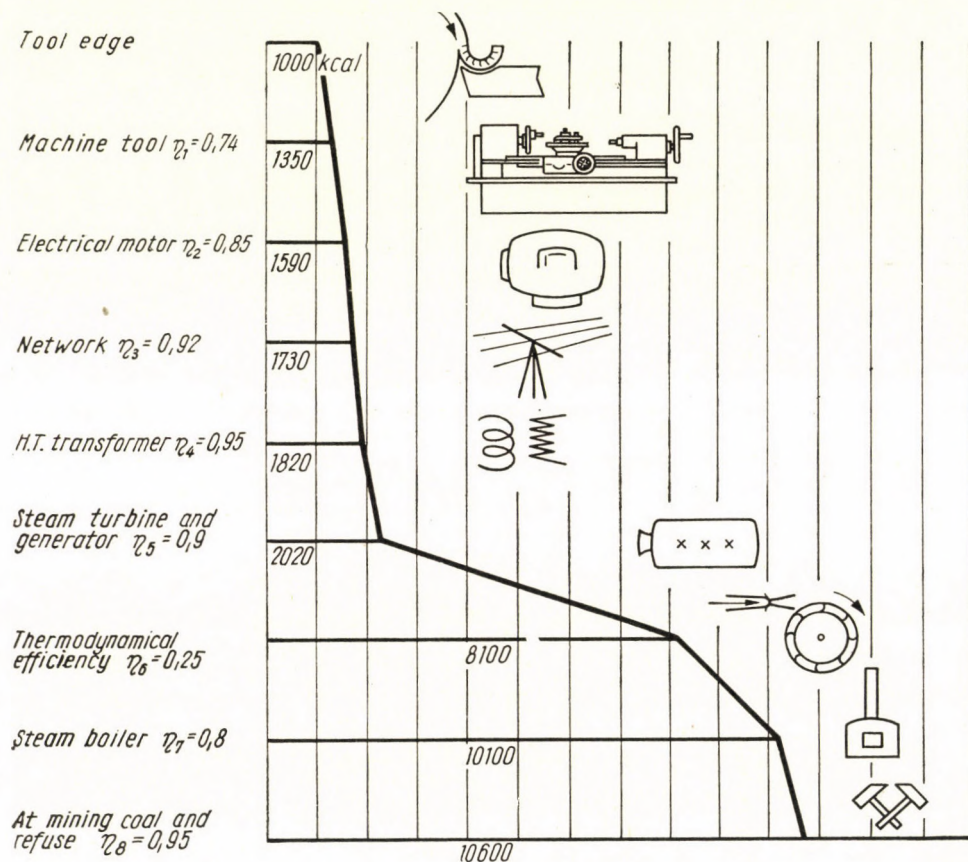 Tool edge
1000 kcal
Machine tool η₁=0,74
1350
Electrical motor η₂=0,85
1590
Network η₃=0,92
1730
H.T. transformer η₄=0,95
1820
Steam turbine and
generator η₅=0,9
2020
Thermodynamical
efficiency η₆=0,25
8100
Steam boiler η₇=0,8
10100
At mining coal and
refuse η₈=0,95
10600